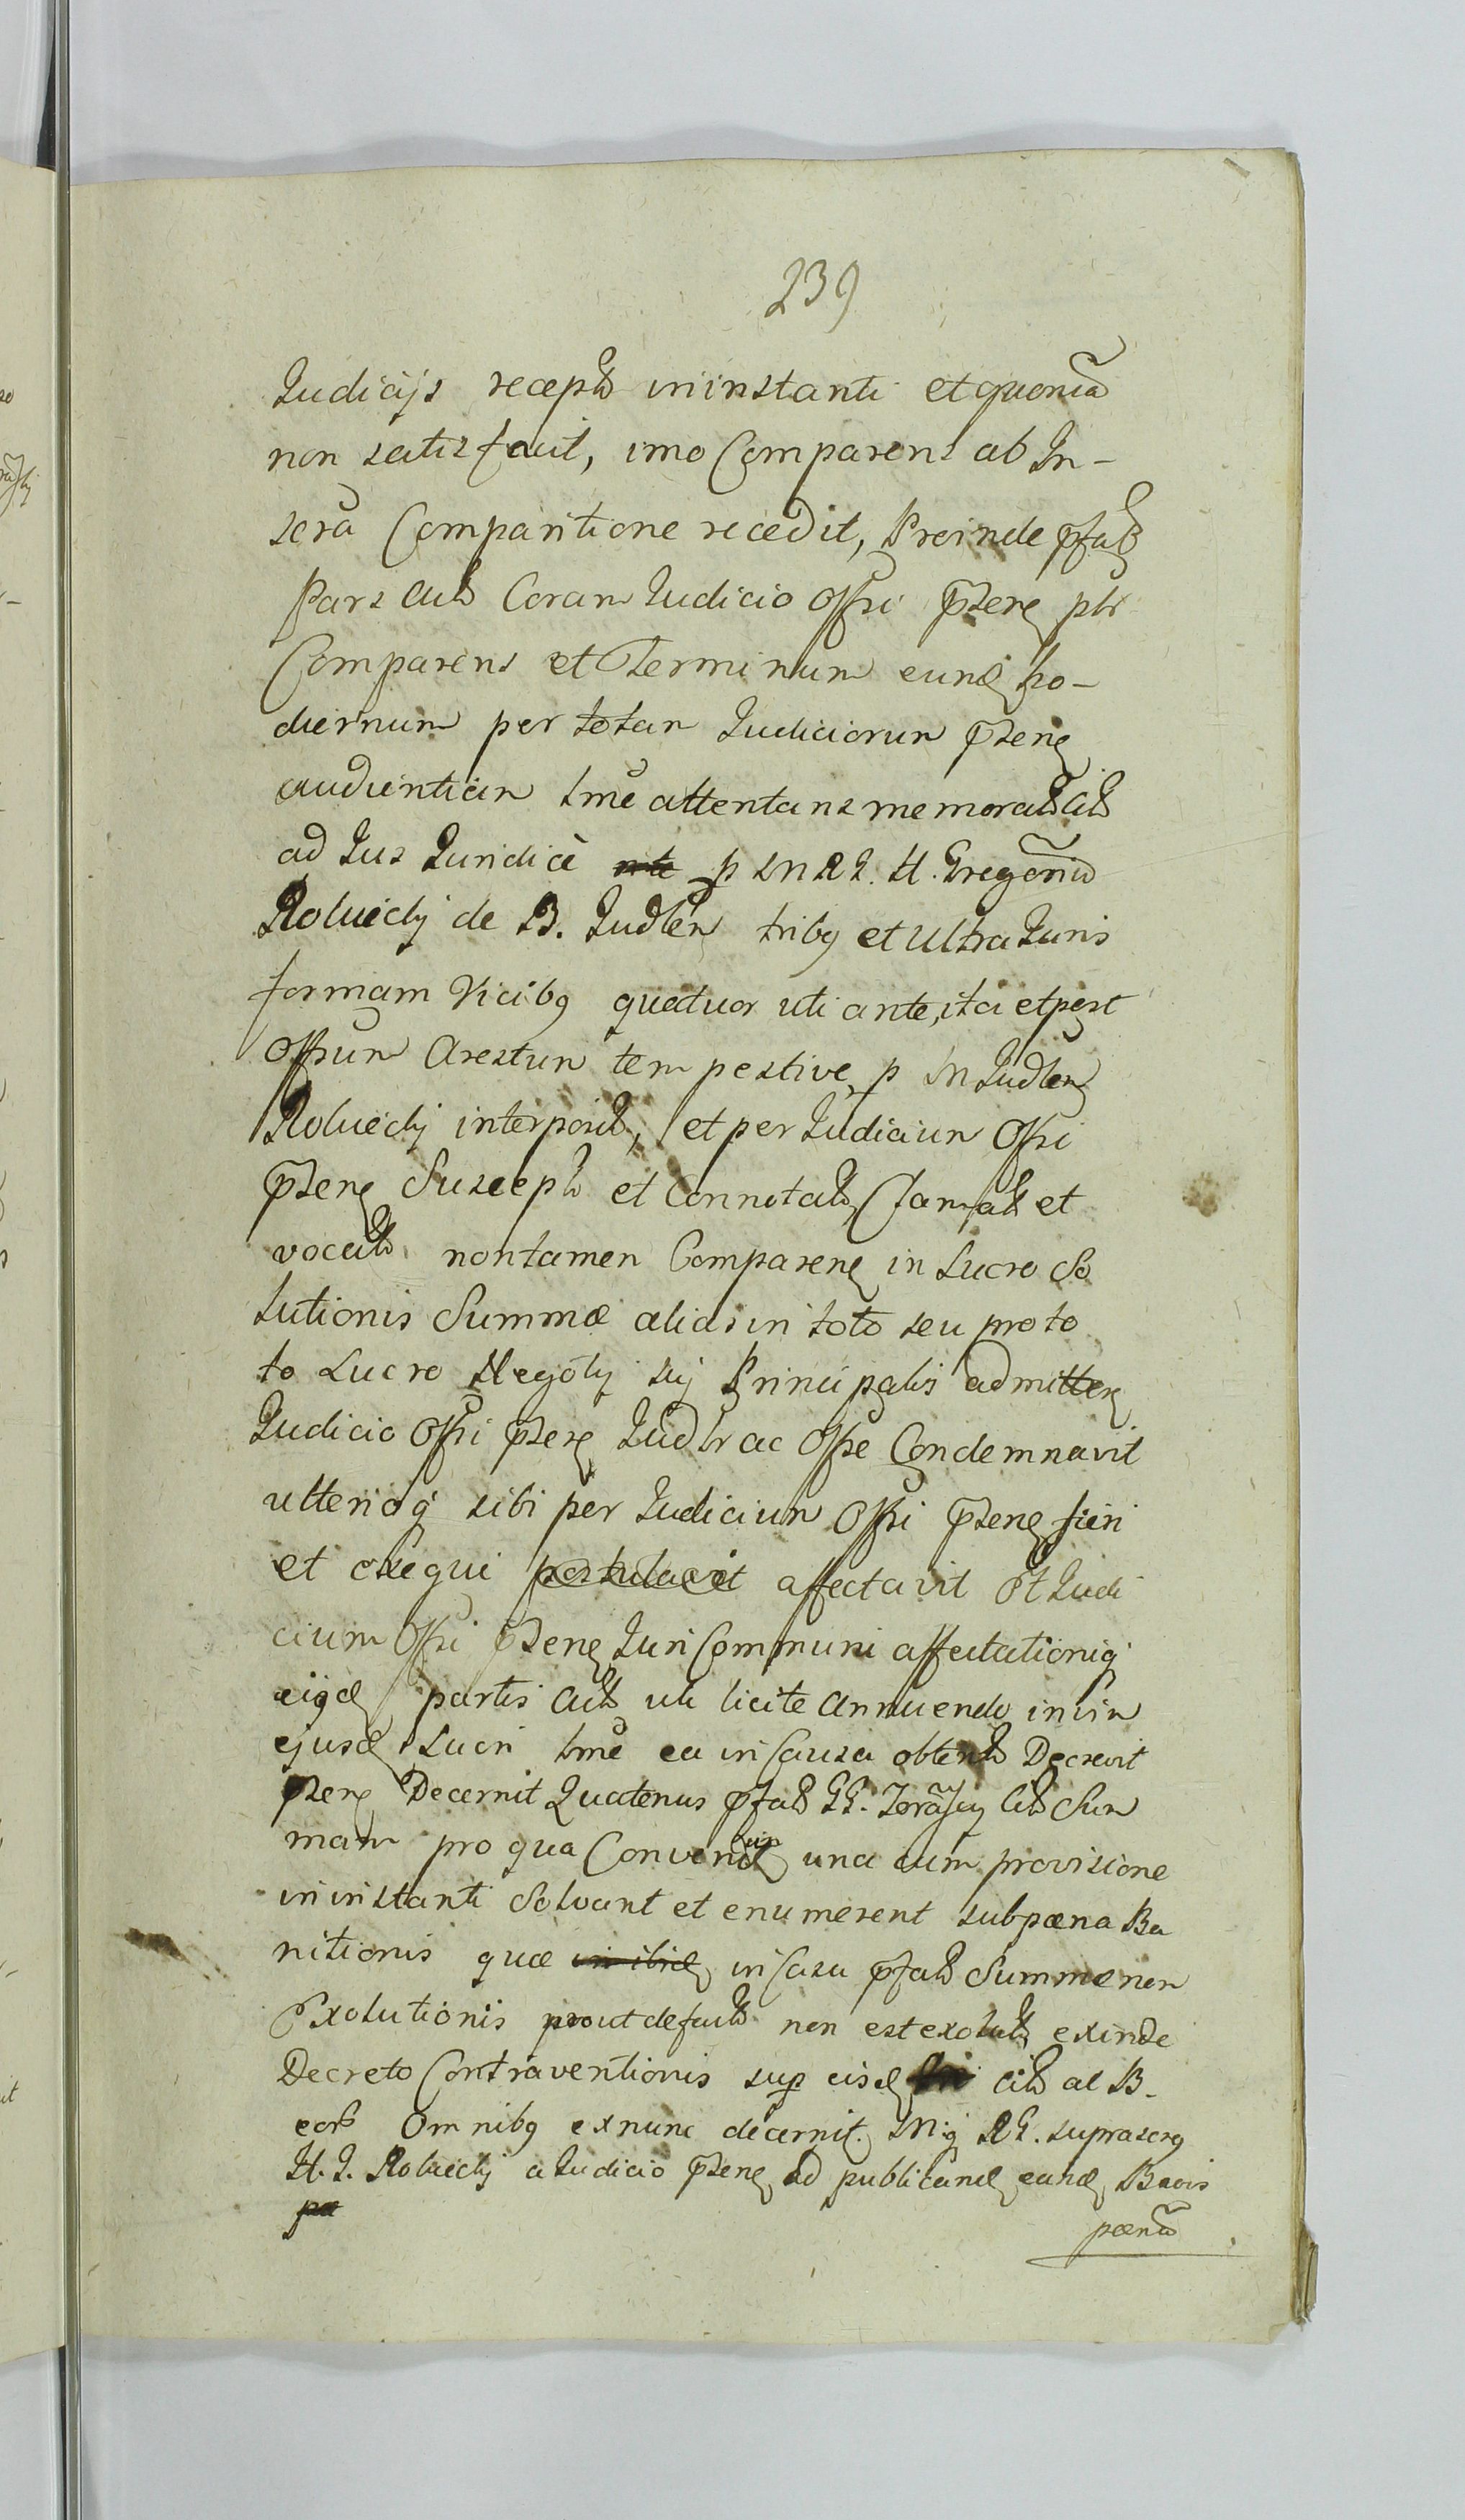 239
Judicijs recepta in instanti et quoniã
non satisfecit, imo Comparens ab In-
scrã Comparitione recedit, Proinde pfata
Pars Act̃a Coram Judicio Offsi p̃sens plr
Comparens et Terminum eund ho-
diernum per totam Judiciorum p̃sens
audientiam tmẽ attentans memorat̃a Cit̃a
ad Jus Juridicè p M R J. H. Gregoriũ
Roluicky de B. Judlem tribq et Ultra Juris
formam Vicibq quatuor uti ante, ita et post
Offsum Arestum tempestive p M Judlem
Roluicky interposit̃a, et per Judicium Offsi
p̃sens Suscepta et Connotat̃a, Clamat̃a et
vocat̃a non tamen Comparen in Lucro So
lutionis Summæ alias in toto seu pro to
to Lucro Negõty sũj Principalis admitten
Judicio Offsi p̃sens Judlr ac Offse Condemnavit
ulteriq sibi per Judicium Offsi p̃sens fieri
et exequi postulavit affectavit Et Judi
cium Offsi p̃sens Juri Communi affectationiq
eiqd partis Act̃a uti licite annuendo in vim
ejusd Lucri tmẽ ea in Causa obtenta Decrevit
p̃sens Decernit Quatenus pfata GG. Cit̃a Sum
mam pro qua Convenit una cum provisione
in instanti Solvant et enumerent sub pæna Ba
nitionis quæ in Casu pfata Summæ non
Exolutionis prout de facto non est exoluta exinde
Decreto Contraventionis sup eisd Cit̃a ac B-
eorũ Omnibq ex nunc decernit. M:q R G. suprascrq
H. J. Roluicky a Judicio p̃sens ad publicand eand Baõis
pænã